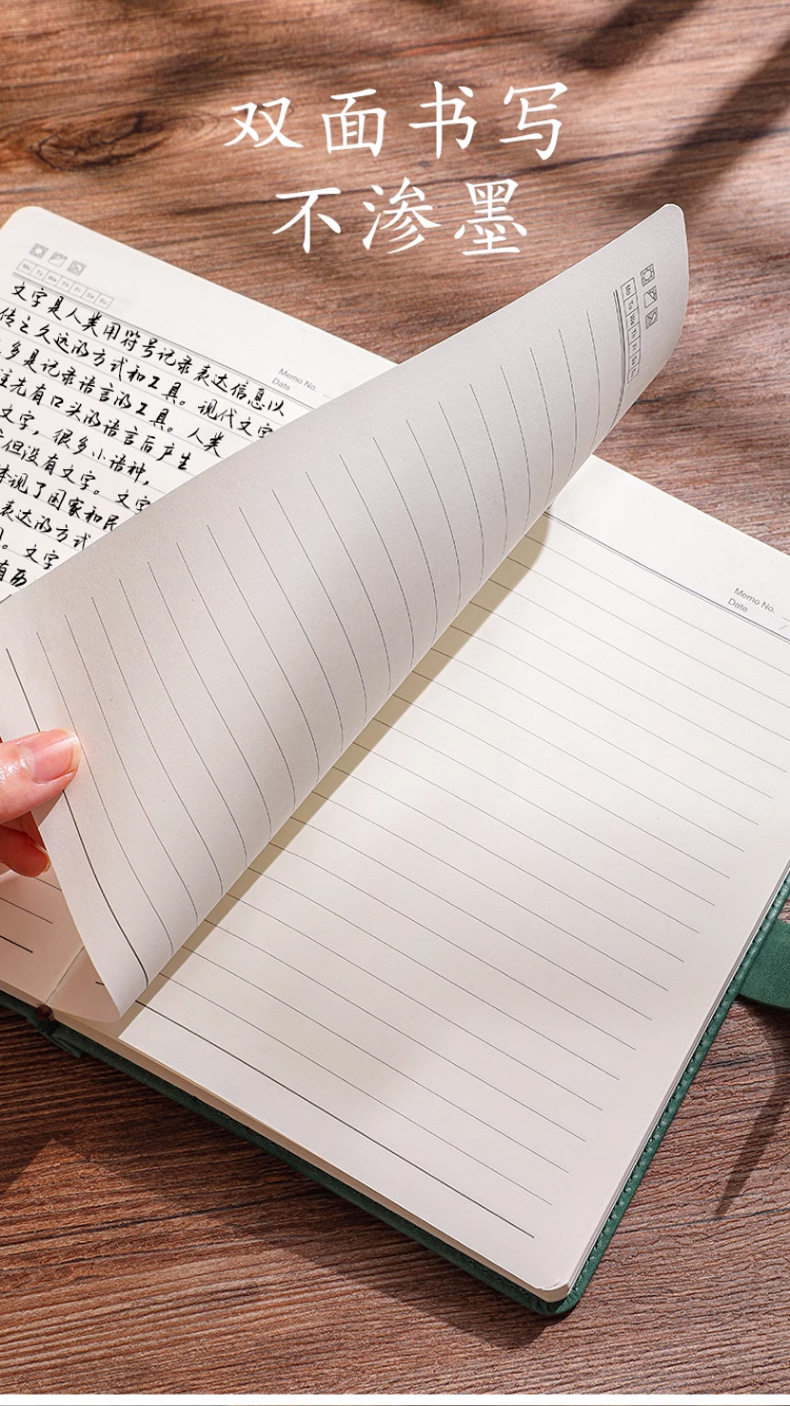 双面书写
不渗墨
Mo Tu We Th Fr Sa Su
Memo No.
Date
文字是人类用符号记录表达信息以
传之久远的方式和工具。现代文字
多是记录语言的工具。人类
先有口头的语言后产生
文字，很多小语种，
但没有文字。文字
体现了国家和民
表达的方式
。文字
Mo Tu We Th Fr Sa Su
Memo No.
Date